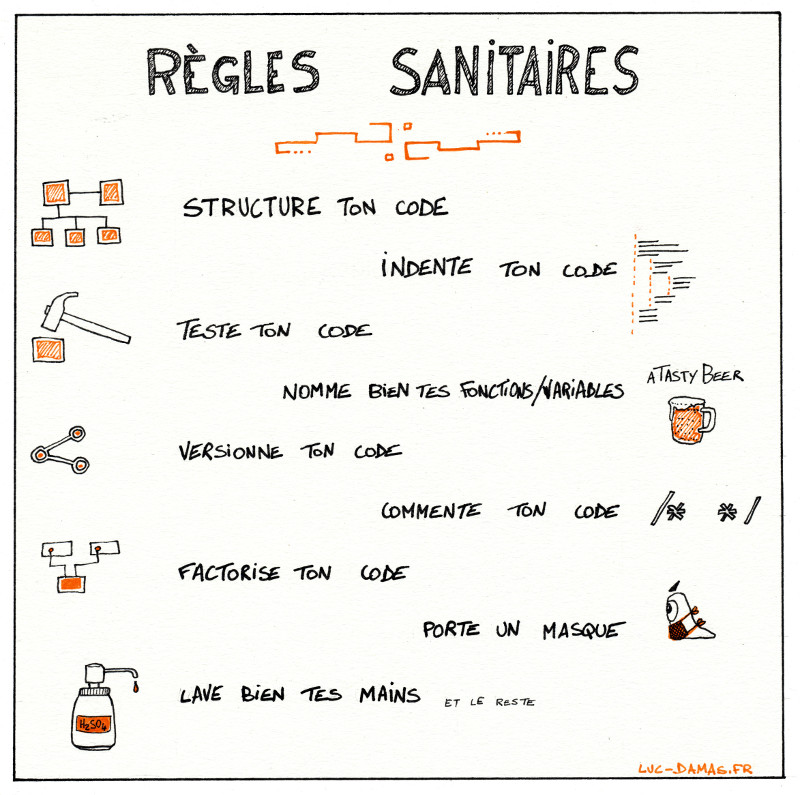 RÈGLES SANITAIRES
STRUCTURE TON CODE
INDENTE TON CODE
TESTE TON CODE
NOMME BIEN TES FONCTIONS/VARIABLES
ATASTYBEER
VERSIONNE TON CODE
COMMENTE TON CODE /* */
FACTORISE TON CODE
PORTE UN MASQUE
LAVE BIEN TES MAINS ET LE RESTE
H2SO4
LUC-DAMAS.FR